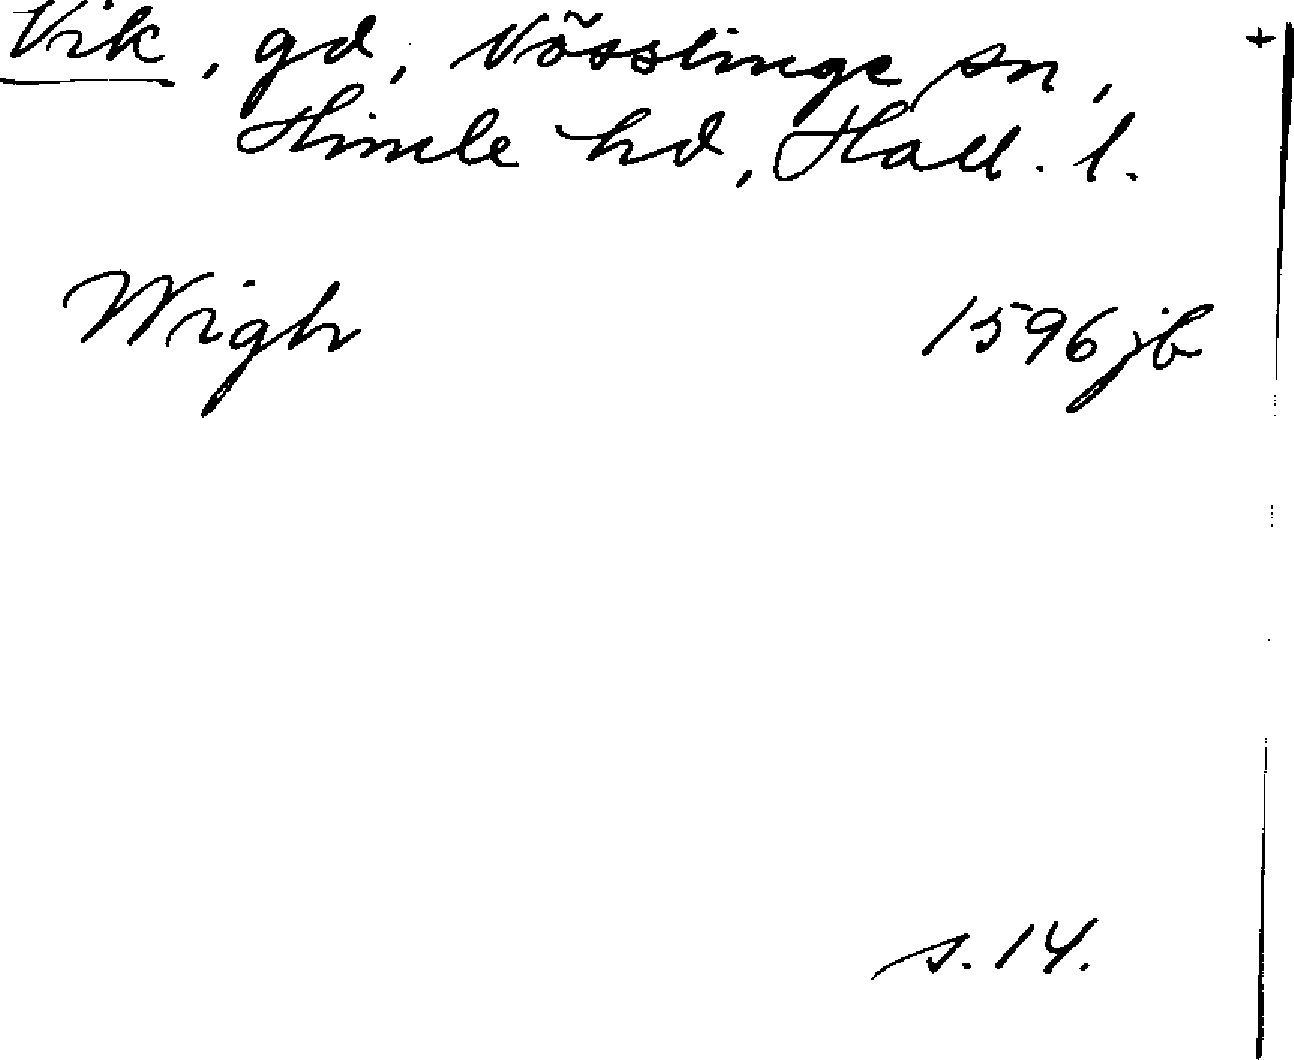 Vik, gd, Nösslinge sn, +
Himle hd, Hall. l.
Wigh 1596 jb
s. 14.